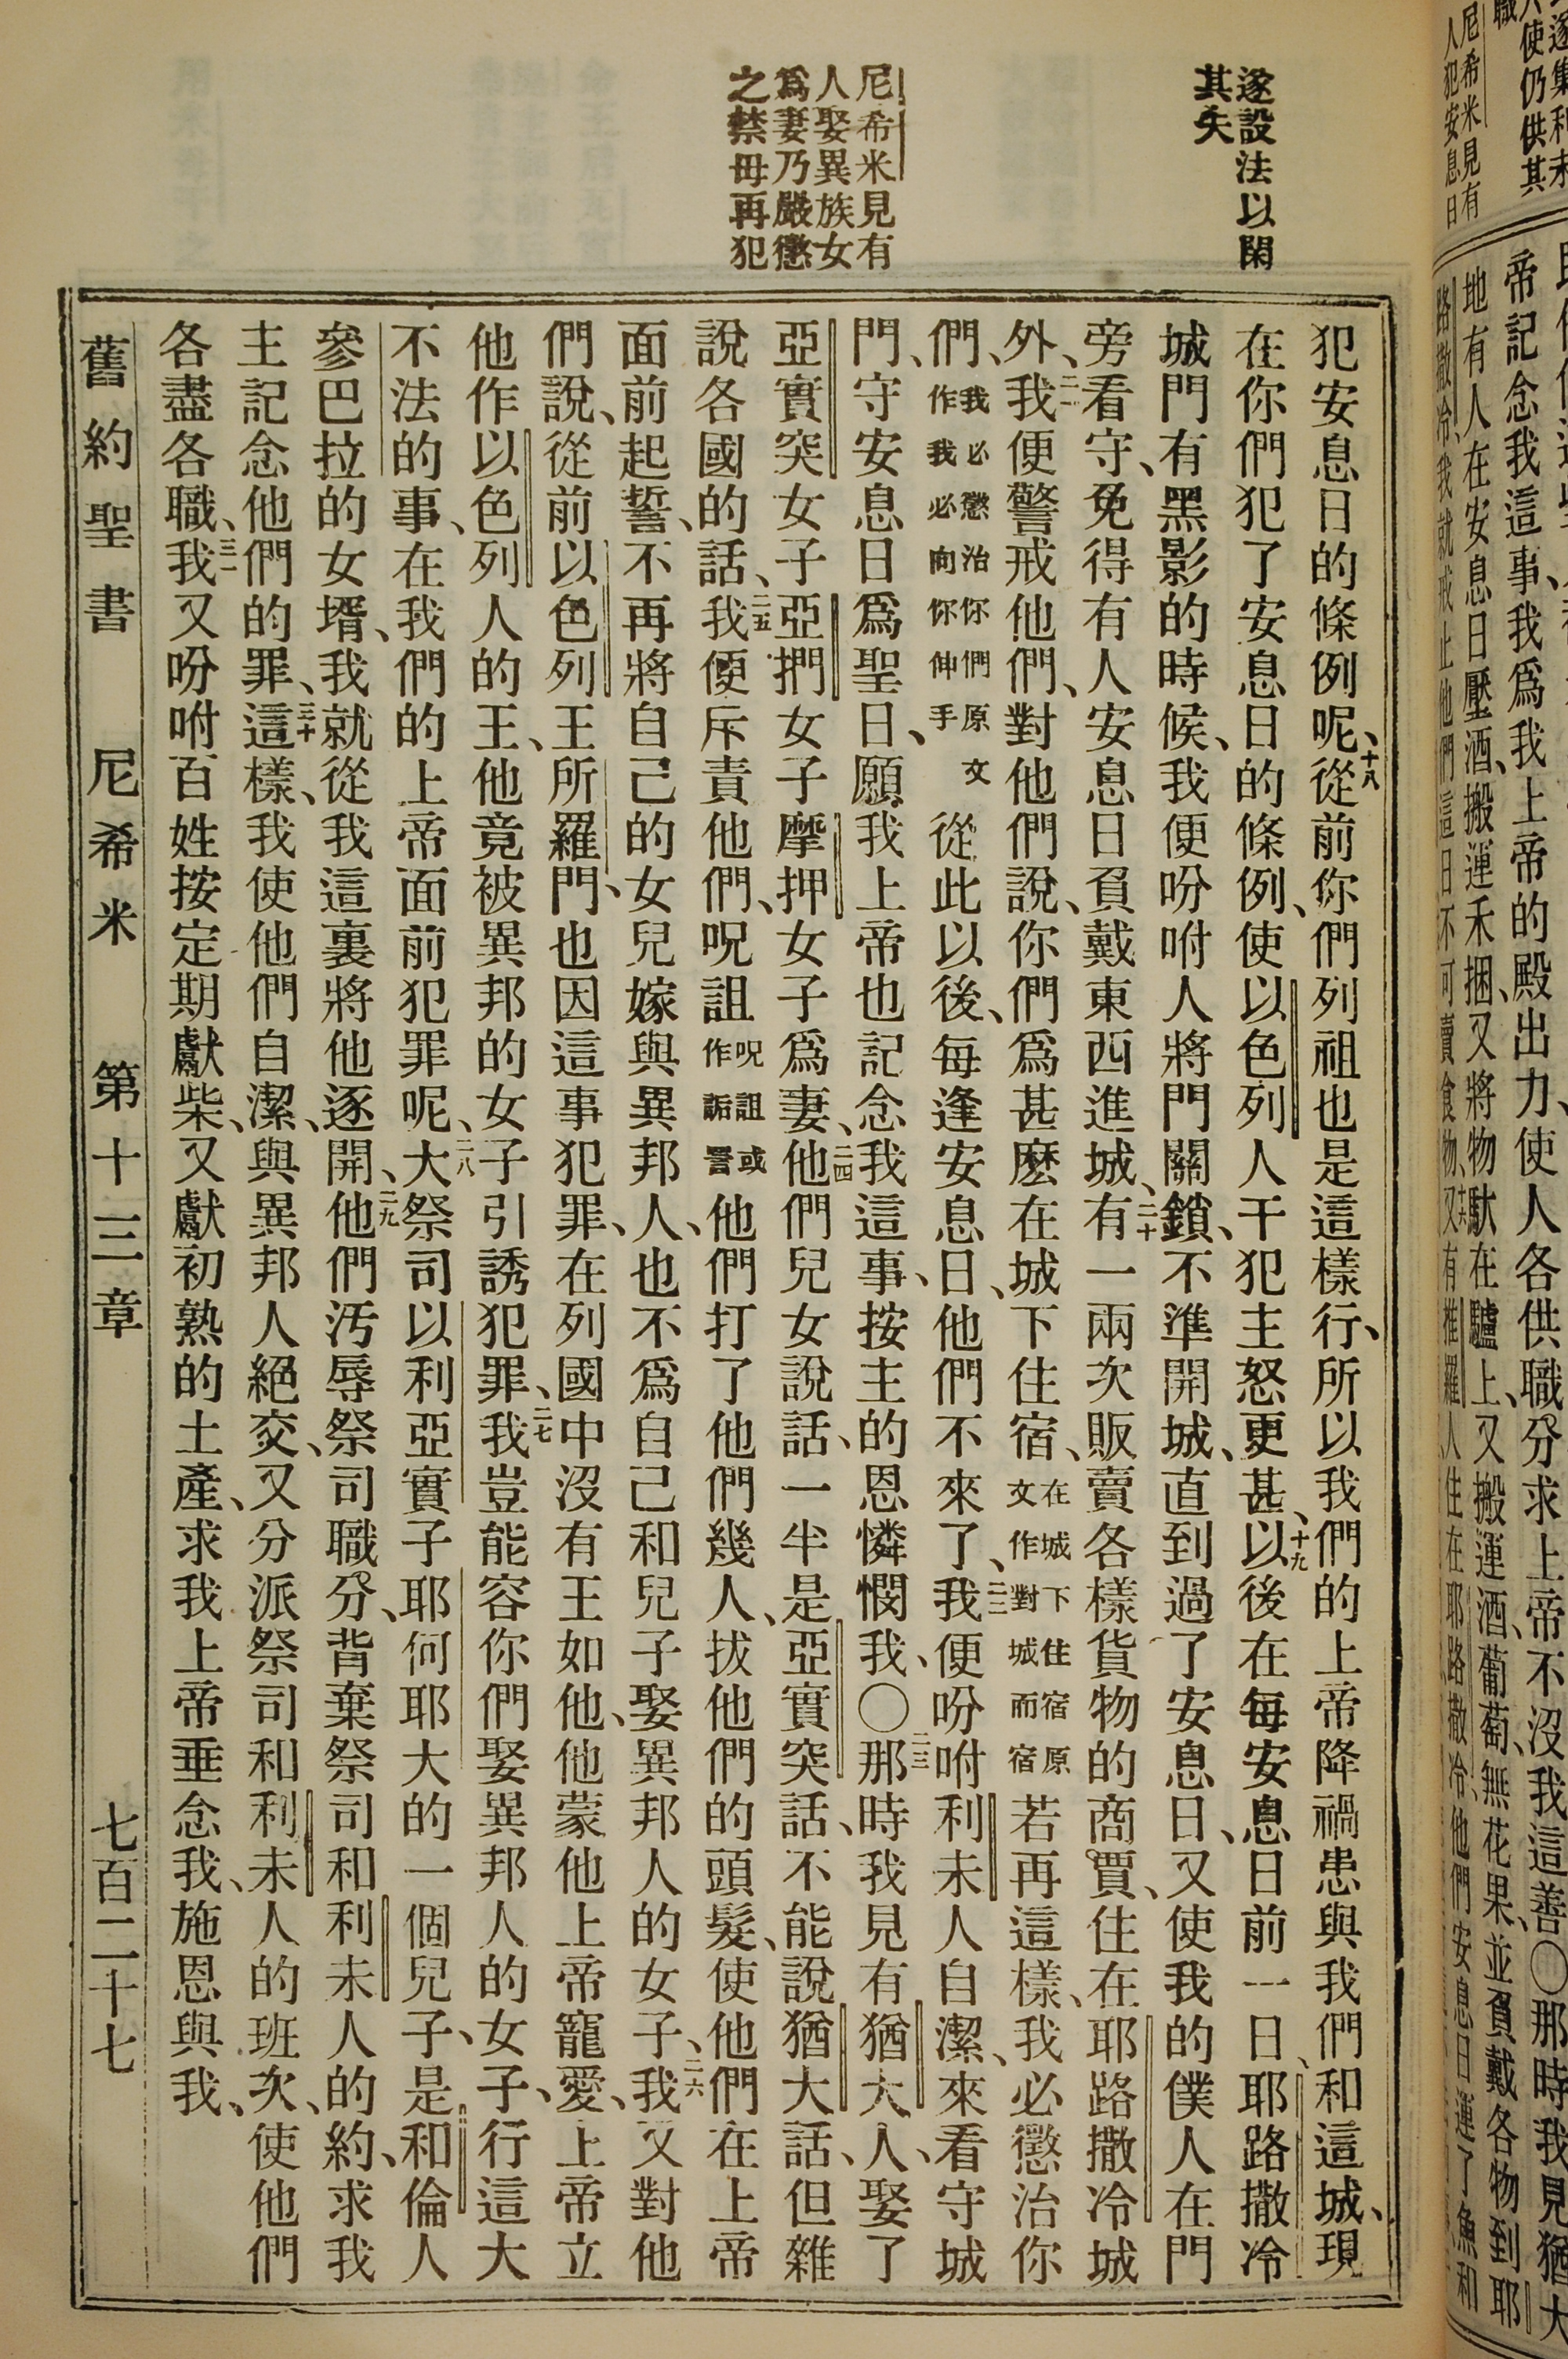 遂設法以閑
其失
尼希米見有
人娶異族女
爲妻乃嚴懲
之禁毋再犯
犯安息日的條例呢、十八從前你們列祖也是這樣行、所以我們的上帝降禍患與我們和這城、現
在你們犯了安息日的條例、使以色列人干犯主怒更甚、十九以後在每安息日前一日、耶路撒冷
城門有黑影的時候、我便吩咐人將門關鎖、不準開城、直到過了安息日、又使我的僕人在門
旁看守、免得有人安息日負戴東西進城、二十有一兩次販賣各樣貨物的商賈、住在耶路撒冷城
外、二一我便警戒他們、對他們說、你們爲甚麼在城下住宿、在城下住宿原文作對城而宿若再這樣、我必懲治你
們、我必懲治你們原文作我必向你伸手從此以後、每逢安息日、他們不來了、二二我便吩咐利未人自潔、來看守城
門、守安息日爲聖日、願我上帝也記念我這事、按主的恩憐憫我、〇二三那時我見有猶大人、娶了
亞實突女子亞捫女子摩押女子爲妻、二四他們兒女說話、一半是亞實突話、不能說猶大話、但雜
說各國的話、二五我便斥責他們、呪詛呪詛或作詬詈他們打了他們幾人、拔他們的頭髮、使他們在上帝
面前起誓、不再將自己的女兒嫁與異邦人、也不爲自己和兒子娶異邦人的女子、二六我又對他
們說、從前以色列王所羅門、也因這事犯罪、在列國中沒有王如他、他蒙他上帝寵愛、上帝立
他作以色列人的王、他竟被異邦的女子引誘犯罪、二七我豈能容你們娶異邦人的女子、行這大
不法的事、在我們的上帝面前犯罪呢、二八大祭司以利亞實子耶何耶大的一個兒子、是和倫人
參巴拉的女壻、我就從我這裏將他逐開、二九他們汚辱祭司職分、背棄祭司和利未人的約、求我
主記念他們的罪、三十這樣、我使他們自潔、與異邦人絕交、又分派祭司和利未人的班次、使他們
各盡各職、三一我又吩咐百姓按定期獻柴、又獻初熟的土產、求我上帝垂念我、施恩與我、
舊約聖書 尼希米 第十三章 七百二十七